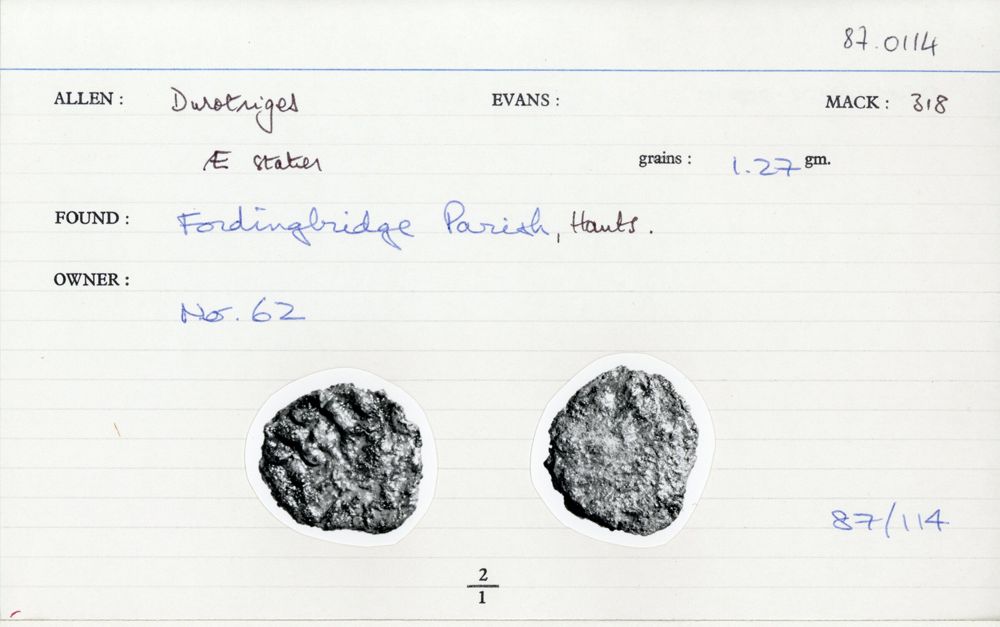 87.0114
ALLEN: Durotriges EVANS: MACK: 318
Æ stater grains: 1.27 gm.
FOUND: Fordingbridge Parish, Hants.
OWNER:
No. 62
87/114
2
1